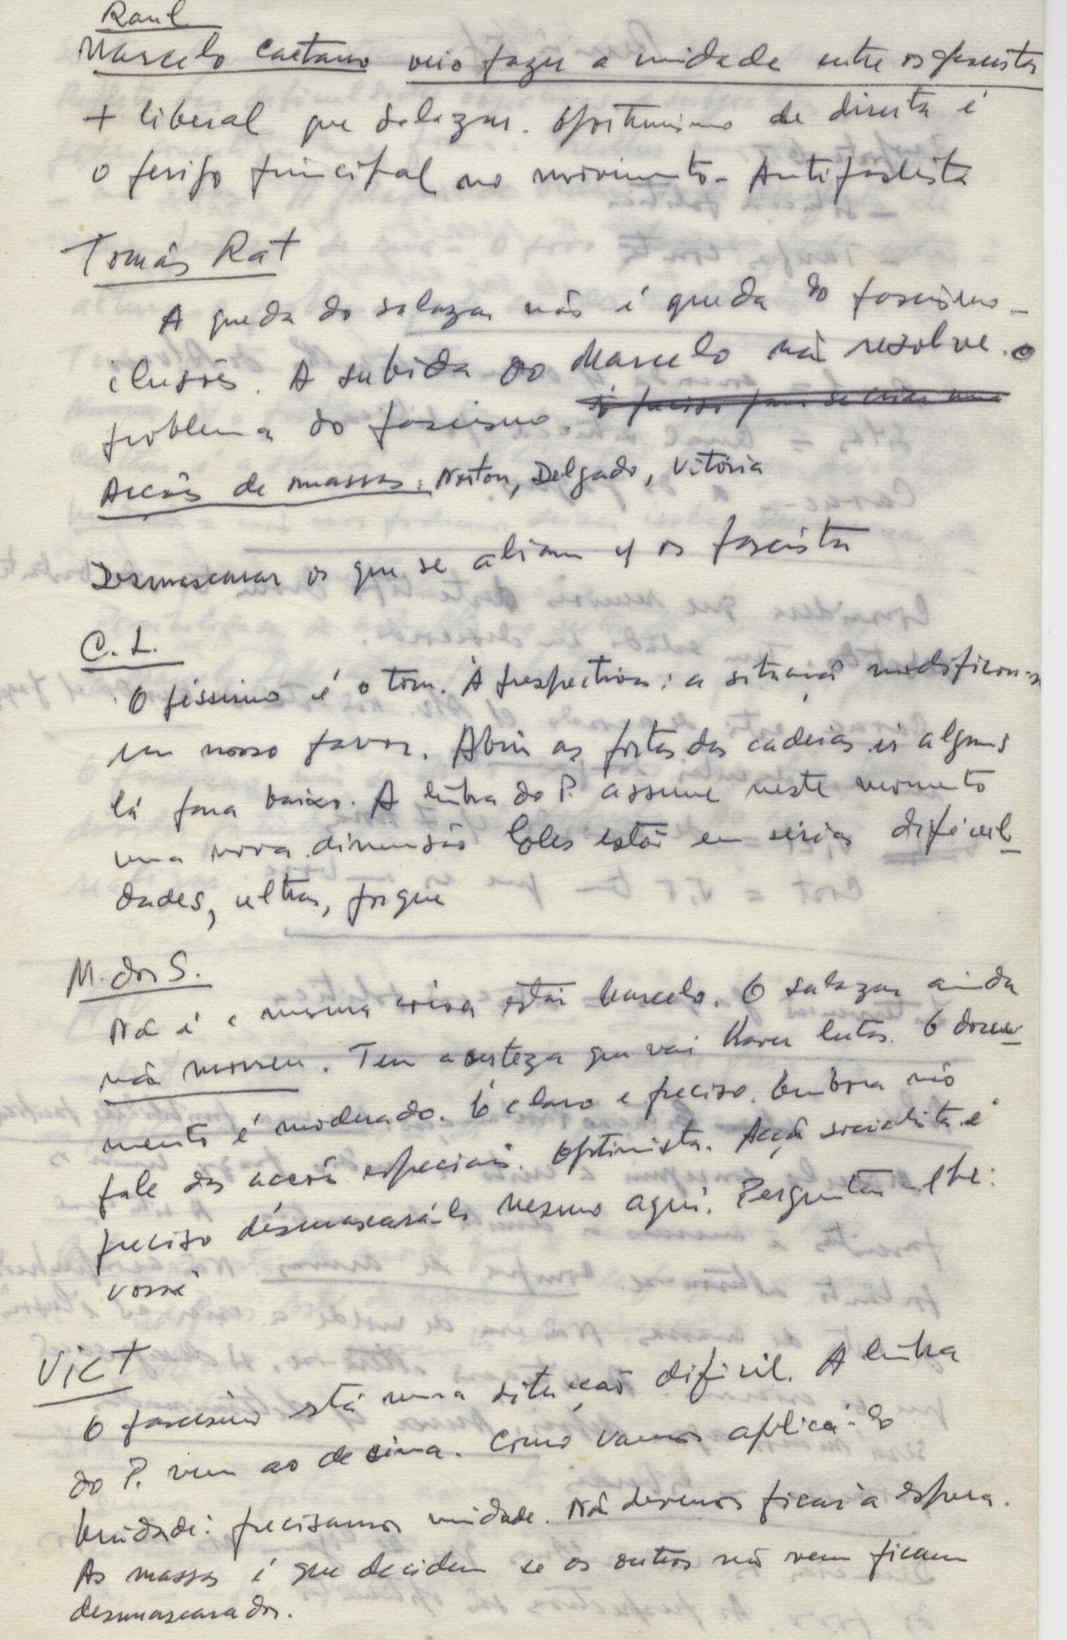 Raul
Marcelo Caetano veio fazer a unidade entre os fascistas
+ liberal que Salazar. Oportunismo de direita é
o perigo principal no movimento - Antifascista
Tomás Rat
A queda do Salazar não é queda do fascismo -
ilusões. A subida do Marcelo não resolve o
problema do fascismo. É preciso para se criar uma
Acções de massas: Norton, Delgado, Vitória
Desmascarar os que se aliam c/ os fascistas
C. L.
O péssimo é o tom. A perspectiva: a situação modificou-se
em nosso favor. Abrir as portas das cadeias ir alguns
lá para baixo. A linha do P. assume neste momento
uma nova dimensão. Eles estão em sérias dificul-
dades, ultras, porque
M. dos S.
Não é a mesma coisa estar Marcelo. O Salazar ainda
não morreu. Tem a certeza que vai haver lutas. O docu-
mento é moderado. É claro e preciso. Embora não
fale das acções especiais. Optimista. Acção socialista é
preciso desmascará-la mesmo aqui. Perguntar-lhe:
você
Vict
O fascismo está numa situação difícil. A linha
do P. vem ao de cima. Como vamos aplicá-la
Unidade: precisamos unidade. Não devemos ficar à espera.
As massas é que decidem se os outros não vem ficam
desmascarados.